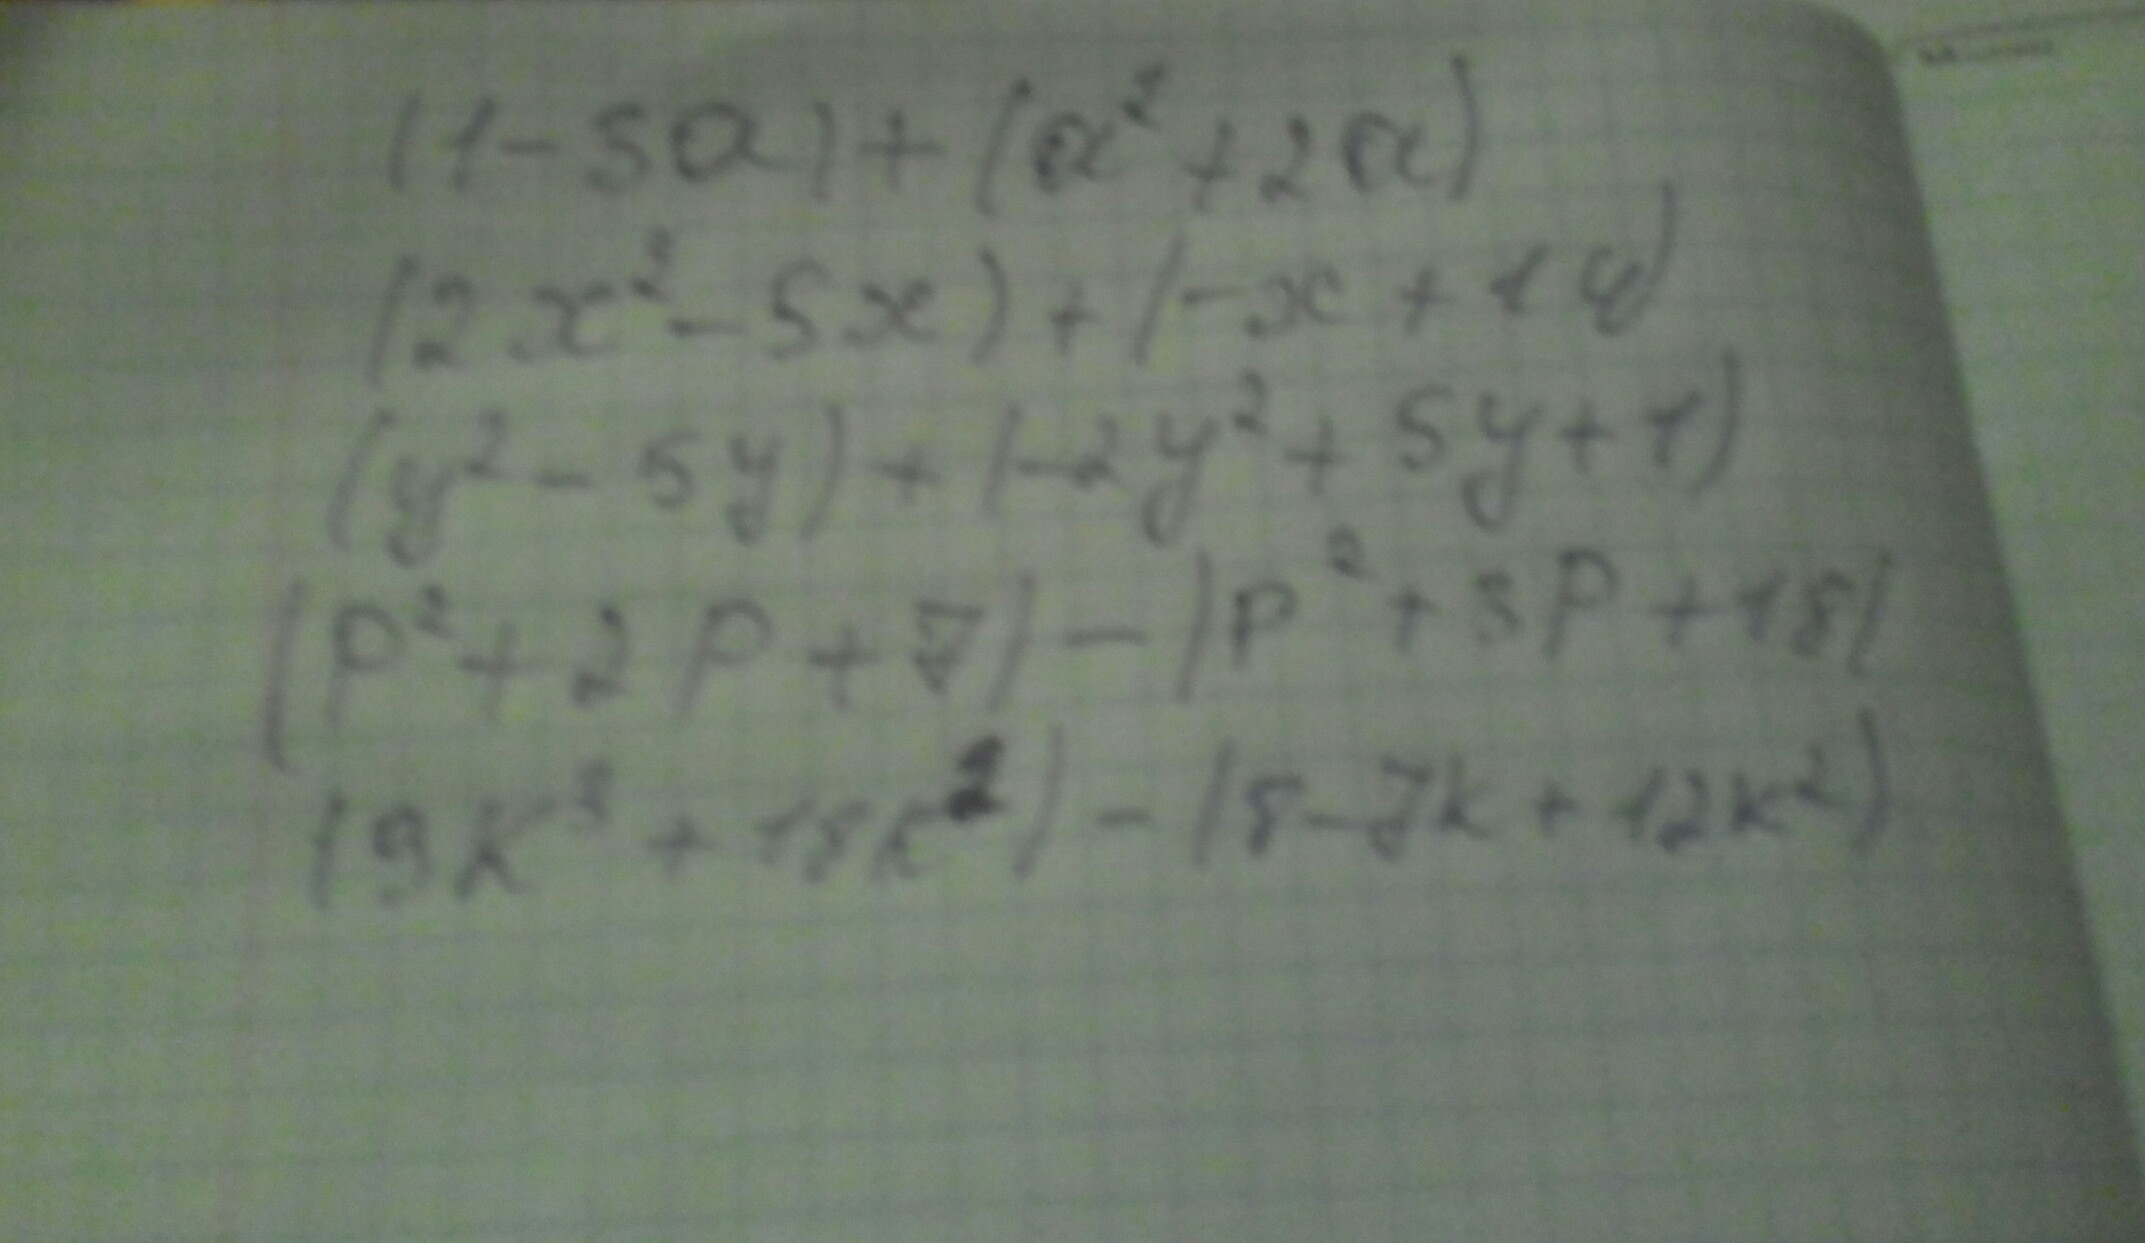 (1-5a)+(a²+2a)
(2x²-5x)+(-x+14)
(y²-5y)+(-2y²+5y+1)
(p²+2p+7)-(p²+3p+18)
(9k³+18k²)-(8-7k+12k²)